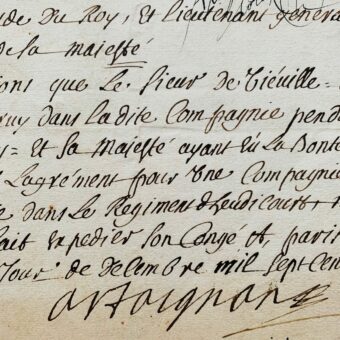 de du Roy, et Lieutenant general
de sa majesté
ons que Le sieur de Tiéville =
dans la dite Compagnie pend
= Et sa Majesté ayant eü La Bonté
Lagrément pour Une Compagnie
dans Le Regiment d'heudicourt
fait expedier son Congé
Jour de decembre mil sept Cen
artaignan